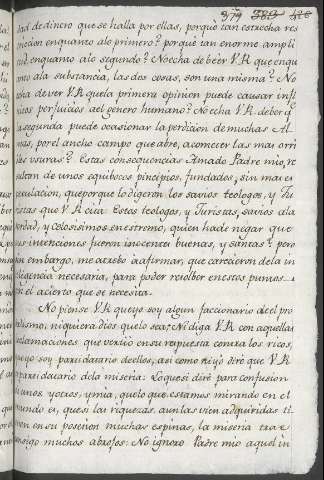 379 383 426
dad de dinero que se halla por ellas, porque tan estrecha res
triccion en quanto alo primero? porque tan enorme ampli
tud, en quanto alo segundo? No echa de beer V.R. que en qu
anto ala substancia, las dos cosas, son una misma? No
echa de ver V.R. que la primera opinion puede causar infi
nitos perjuicios ael genero humano? No echa V.R. de ber q.e
la segunda puede ocasionar la perdicion de muchas Al
mas, por el ancho campo que abre, acometer las mas orri
bles vsuras? Estas consequencias Amado Padre mio, re
sultan de unos equibocos pincipios, fundados, sin mas es
peculacion, que porque lo digeron los savios teologos, y Ju
ristas que V.R. cita. Estos teologos, y Juristas, savios ala
verdad, y celosisimos en estremo, quien hade negar que
sus intenciones fueron inocentes buenas, y santas? pero
sin embargo, me atrebo a afirmar, que carecieron dela in
teligencia necesaria, para poder resolber en estos puntos
con el acierto que se necesita.
No piense V.R. que yo soy algun faccionario de el pro
balismo, ni quiera dios que lo sea. Ni diga V.R. con aquellas
exclamaciones que vertió en su repuesta contra los ricos,
que yo soy partidatario de ellos, asi como ni yo diré que V.R.
es partidatario dela miseria: Lo que si diré para confusion
de unos, y otros, y mia, que lo que estamos mirando en el
mundo es, que si las riquezas, aun las vien adquiridas ti
enen en su posesion muchas espinas, la miseria trae
consigo muchos abrojos: No ignoro Padre mio aquel in